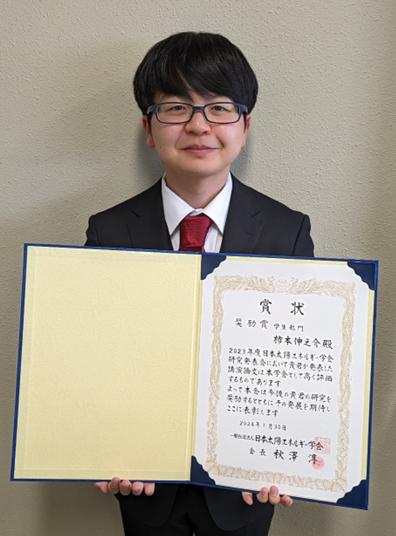 賞状
奨励賞 学生部門
柿本伸之介殿
2023年度日本太陽エネルギー学会
研究発表会において貴君が発表した
講演論文は本学会として高く評価
するものであります
よって本会は今後の貴君の研究を
奨励するとともにその発展を期待し
ここに表彰します
2024年1月30日
一般社団法人日本太陽エネルギー学会
会長 秋澤 淳